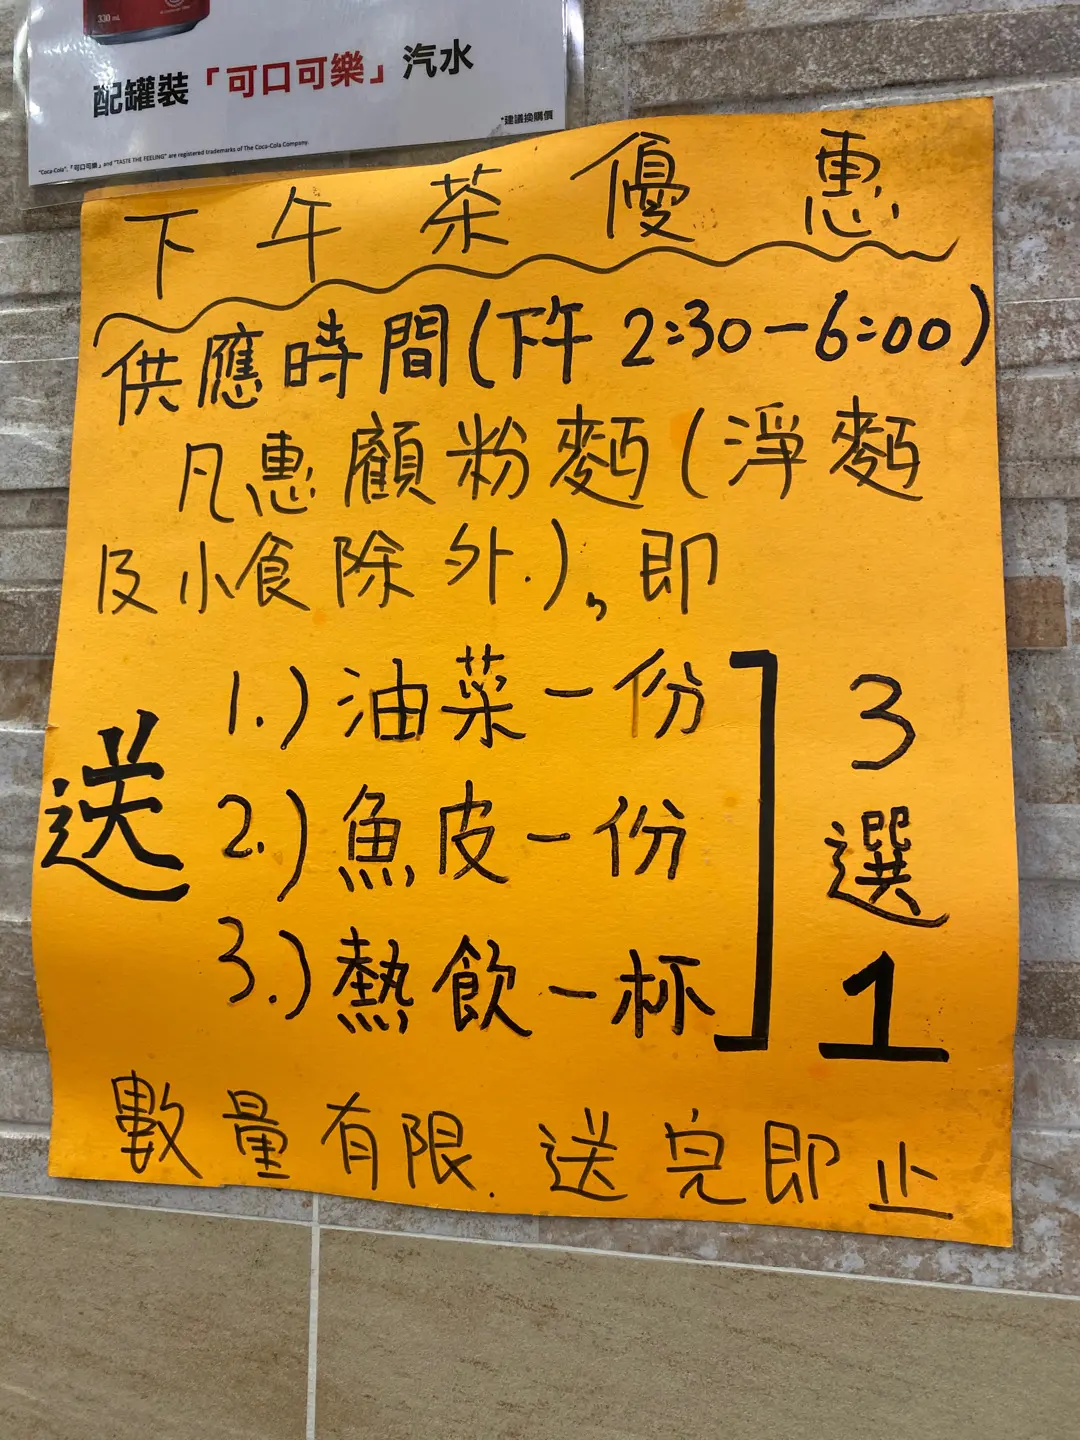 330 mL
配罐裝「可口可樂」汽水
*建議換購價
"Coca-Cola", 「可口可樂」 and "TASTE THE FEELING" are registered trademarks of The Coca-Cola Company.
下午茶優惠
供應時間(下午 2:30-6:00)
凡惠顧粉麵(淨麵
及小食除外.), 即
送
1.) 油菜一份
2.) 魚皮一份
3.) 熱飲一杯
3選1
數量有限. 送完即止